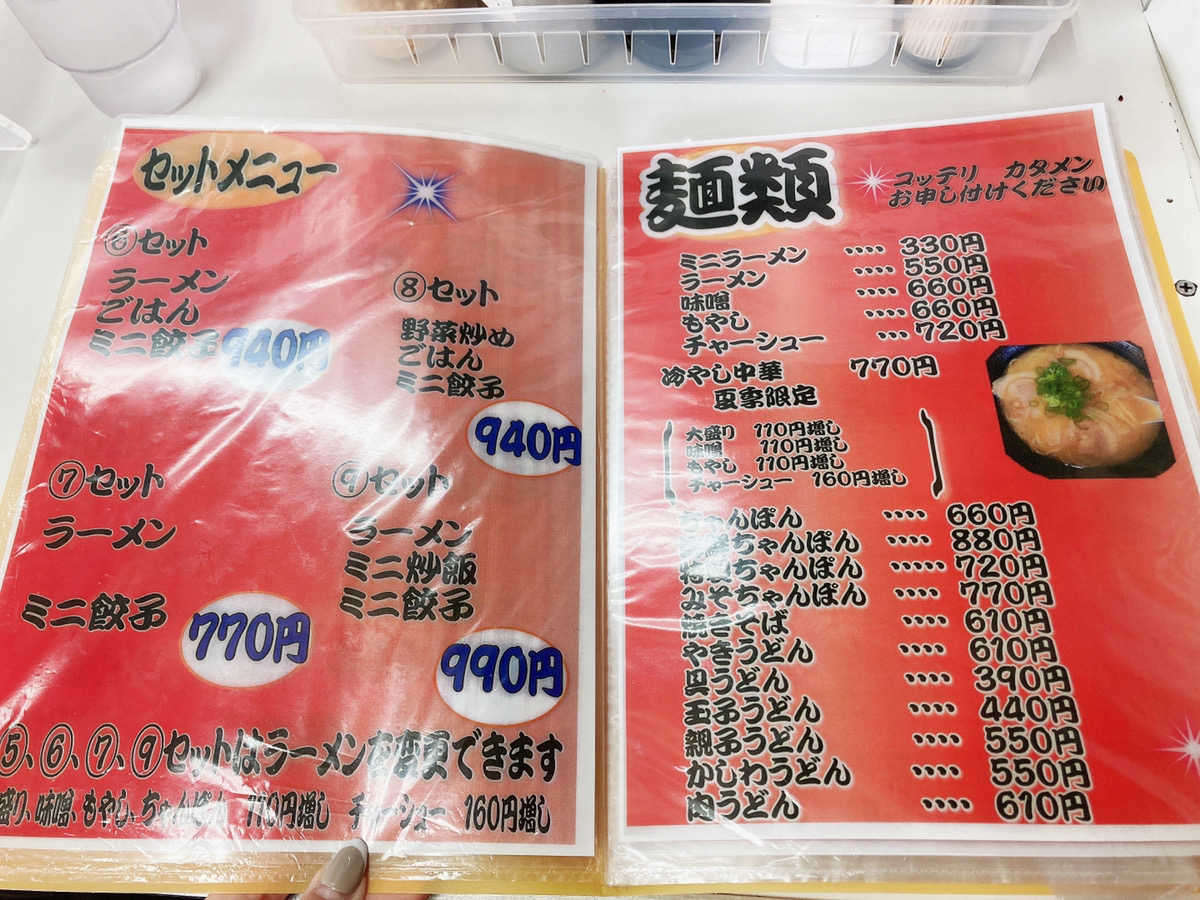 セットメニュー
⑥セット
ラーメン
ごはん
ミニ餃子 940円
⑧セット
野菜炒め
ごはん
ミニ餃子
940円
⑦セット
ラーメン
ミニ餃子
770円
⑨セット
ラーメン
ミニ炒飯
ミニ餃子
990円
⑤、⑥、⑦、⑨セットはラーメンを変更できます
盛り、味噌、もやし、ちゃんぽん 110円増し チャーシュー 160円増し
麺類
コッテリ カタメン
お申し付けください
ミニラーメン ････ 330円
ラーメン ････ 550円
味噌 ････ 660円
もやし ････ 660円
チャーシュー ････ 720円
冷やし中華 770円
夏季限定
大盛り 110円増し
味噌 110円増し
もやし 110円増し
チャーシュー 160円増し
ちゃんぽん ････ 660円
ちゃんぽん ････ 880円
ちゃんぽん ･････ 720円
みそちゃんぽん ････ 770円
焼きそば ････ 610円
やきうどん ････ 610円
具うどん ････ 390円
玉子うどん ････ 440円
親子うどん ････ 550円
かしわうどん ････ 550円
肉うどん ････ 610円